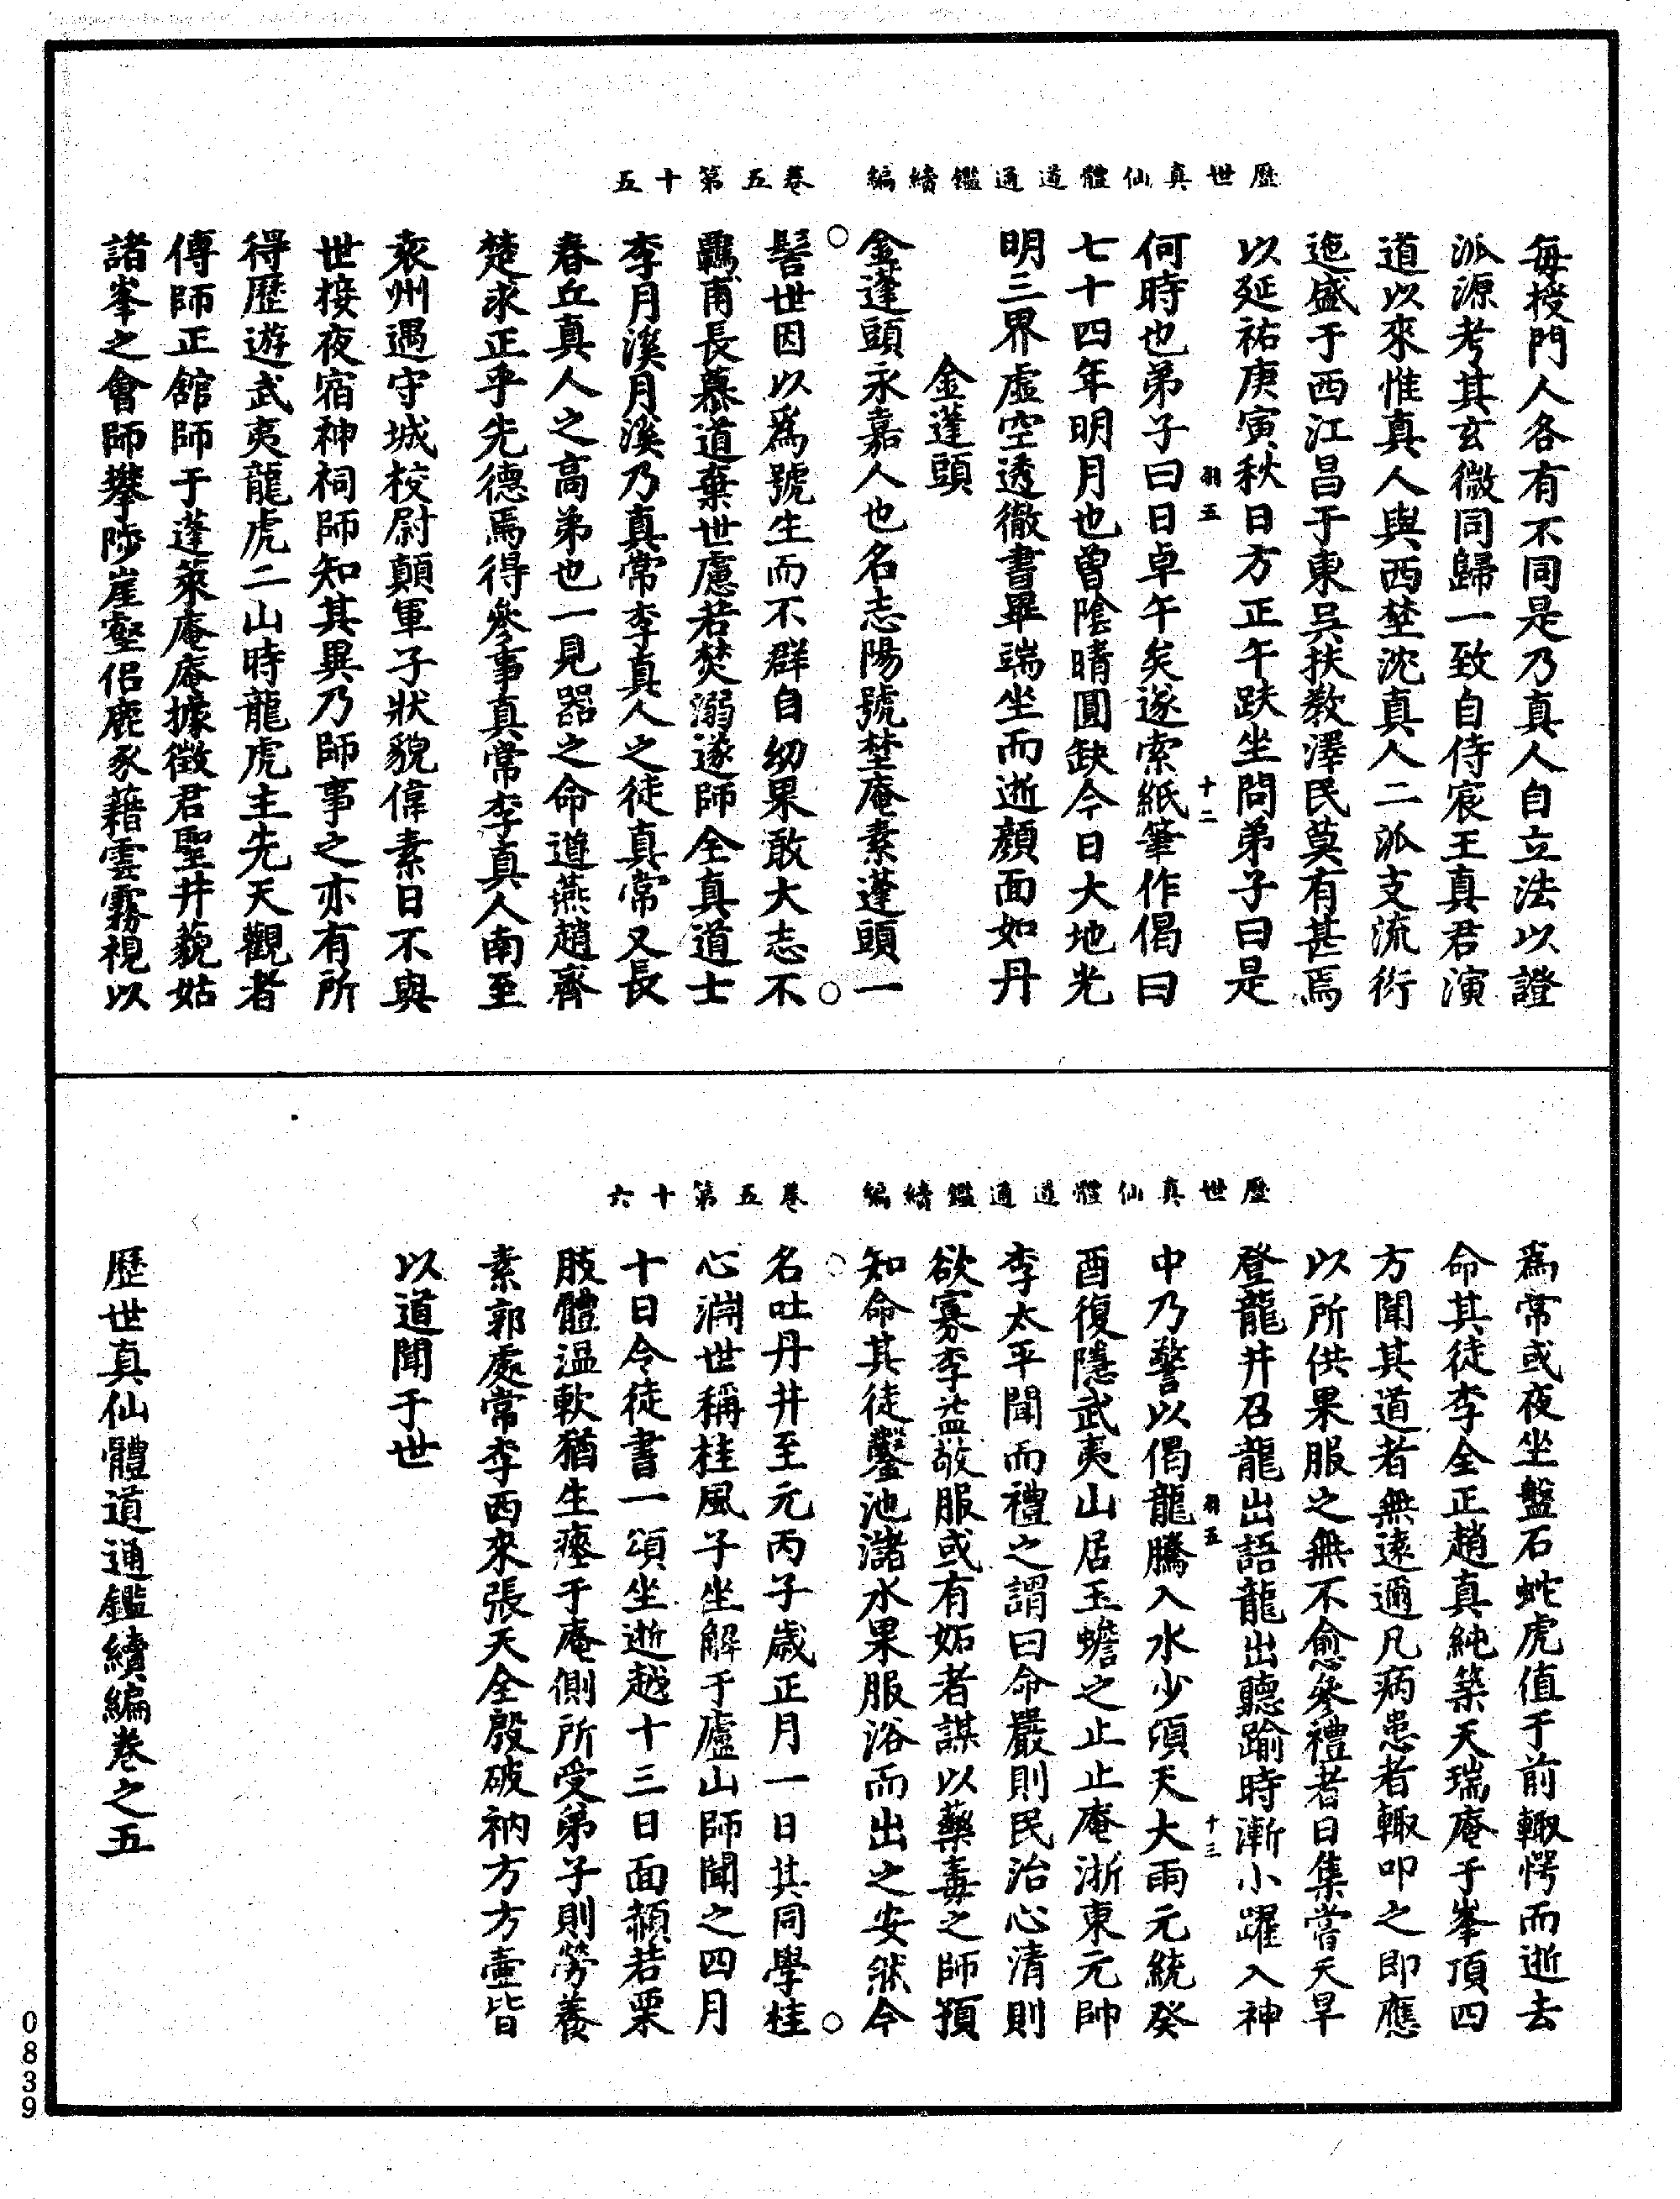 歷世真仙體道通鑑續編　卷五第十五
每授門人各有不同是乃真人自立法以證
派源考其玄微同歸一致自侍宸王真君演
道以來惟真人與西埜沈真人二派支流衍
迤盛于西江昌于東吳扶教澤民莫有甚焉
以延祐庚寅秋日方正午趺坐問弟子曰是
羽五　十二
何時也弟子曰日卓午矣遂索紙筆作偈曰
七十四年明月也曾陰晴圓缺今日大地光
明三界虛空透徹書畢端坐而逝顏面如丹
金蓬頭
金蓬頭永嘉人也名志陽號埜庵素蓬頭一
髻世因以為號生而不群自幼果敢大志不
羈甫長慕道棄世慮若焚溺遂師全真道士
李月溪月溪乃真常李真人之徒真常又長
春丘真人之高弟也一見器之命遊燕趙齊
楚求正乎先德焉得參事真常李真人南至
袁州遇守城校尉顛軍子狀貌偉素日不與
世接夜宿神祠師知其異乃師事之亦有所
得歷遊武夷龍虎二山時龍虎主先天觀者
傅師正舘師于蓬萊庵庵據徵君聖井藐姑
諸峯之會師攀陟崖壑侶鹿豕藉雲霧視以
歷世真仙體道通鑑續編　卷五第十六
為常或夜坐盤石蛇虎值于前輙愕而逝去
命其徒李全正趙真純築天瑞庵于峯頂四
方聞其道者無遠邇凡病患者輙叩之即應
以所供果服之無不愈參禮者日集嘗天旱
登龍井召龍出語龍出聽踰時漸小躍入神
羽五　十三
中乃警以偈龍騰入水少頃天大雨元統癸
酉復隱武夷山居玉蟾之止止庵浙東元帥
李太平聞而禮之謂曰命嚴則民治心清則
欲寡李益敬服或有妬者謀以藥毒之師預
知命其徒鑿池瀦水果服浴而出之安然今
名吐丹井至元丙子歲正月一日其同學桂
心淵世稱桂風子坐解于廬山師聞之四月
十日令徒書一頌坐逝越十三日面頳若栗
肢體溫軟猶生瘞于庵側所受弟子則勞養
素郭處常李西來張天全殷破衲方方壷皆
以道聞于世
歷世真仙體道通鑑續編卷之五
0839